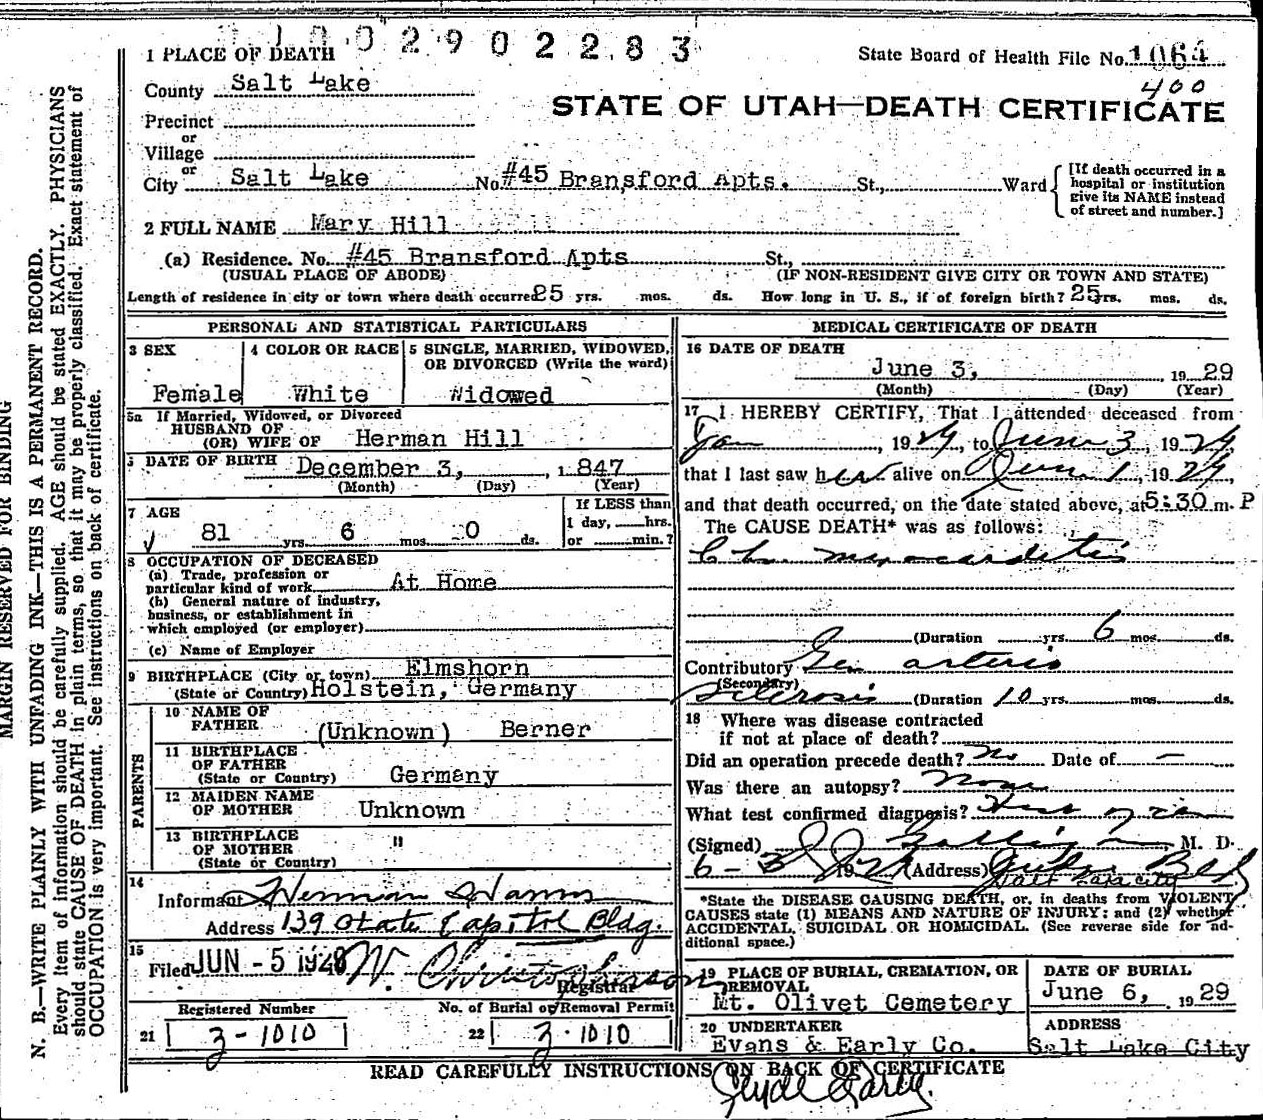 1 PLACE OF DEATH
1 0 0 2 9 0 2 2 8 3
State Board of Health File No. 1064
400
County Salt Lake
STATE OF UTAH—DEATH CERTIFICATE
Precinct
or
Village
or
City Salt Lake No. #45 Bransford Apts. St., Ward
[If death occurred in a hospital or institution give its NAME instead of street and number.]
2 FULL NAME Mary Hill
(a) Residence. No. #45 Bransford Apts St.,
(USUAL PLACE OF ABODE) (IF NON-RESIDENT GIVE CITY OR TOWN AND STATE)
Length of residence in city or town where death occurred 25 yrs. mos. ds. How long in U. S., if of foreign birth? 25 yrs. mos. ds.
PERSONAL AND STATISTICAL PARTICULARS
3 SEX Female
4 COLOR OR RACE White
5 SINGLE, MARRIED, WIDOWED, OR DIVORCED (Write the word) Widowed
5a If Married, Widowed, or Divorced
HUSBAND OF
(OR) WIFE OF Herman Hill
DATE OF BIRTH December 3, 1847
(Month) (Day) (Year)
7 AGE
81 yrs. 6 mos. 0 ds.
If LESS than
1 day, hrs.
or min.?
8 OCCUPATION OF DECEASED
(a) Trade, profession or
particular kind of work At Home
(b) General nature of industry,
business, or establishment in
which employed (or employer)
(c) Name of Employer
9 BIRTHPLACE (City or town) Elmshorn
(State or Country) Holstein, Germany
PARENTS
10 NAME OF
FATHER (Unknown) Berner
11 BIRTHPLACE
OF FATHER
(State or Country) Germany
12 MAIDEN NAME
OF MOTHER Unknown
13 BIRTHPLACE
OF MOTHER "
(State or Country)
14
Informant Herman Harms
Address 139 State Capitol Bldg.
15
Filed JUN - 5 192 W. Christopherson
Registrar
Registered Number No. of Burial or Removal Permit
21 3-1010 22 3-1010
MEDICAL CERTIFICATE OF DEATH
16 DATE OF DEATH
June 3, 1929
(Month) (Day) (Year)
17 I HEREBY CERTIFY, That I attended deceased from
Jan , 1929, to June 3, 1929,
that I last saw her alive on June 1, 1929,
and that death occurred, on the date stated above, at 5:30 m. P
The CAUSE DEATH* was as follows:
Chr. myocarditis
(Duration yrs. 6 mos. ds.
Contributory Gen arterio
(Secondary)
sclerosis (Duration 10 yrs. mos. ds.
18 Where was disease contracted
if not at place of death?
Did an operation precede death? No Date of —
Was there an autopsy? None
What test confirmed diagnosis?
(Signed) M. D.
6-3 1929 (Address) Bldg
Salt Lake City
*State the DISEASE CAUSING DEATH, or, in deaths from VIOLENT
CAUSES state (1) MEANS AND NATURE OF INJURY; and (2) whether
ACCIDENTAL, SUICIDAL OR HOMICIDAL. (See reverse side for ad-
ditional space.)
19 PLACE OF BURIAL, CREMATION, OR
REMOVAL
Mt. Olivet Cemetery
DATE OF BURIAL
June 6, 1929
20 UNDERTAKER
Evans & Early Co.
ADDRESS
Salt Lake City
READ CAREFULLY INSTRUCTIONS ON BACK OF CERTIFICATE
MARGIN RESERVED FOR BINDING
N. B.—WRITE PLAINLY WITH UNFADING INK—THIS IS A PERMANENT RECORD.
Every item of information should be carefully supplied. AGE should be stated EXACTLY. PHYSICIANS
should state CAUSE OF DEATH in plain terms, so that it may be properly classified. Exact statement of
OCCUPATION is very important. See instructions on back of certificate.